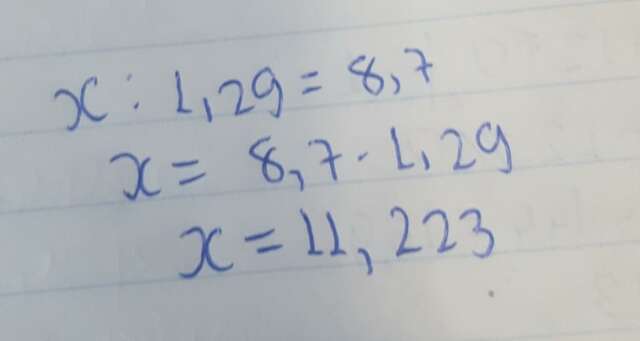 x : 1,29 = 8,7
x = 8,7 · 1,29
x = 11,223